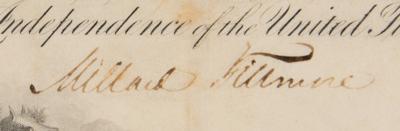 Independence of the United St
Millard Fillmore